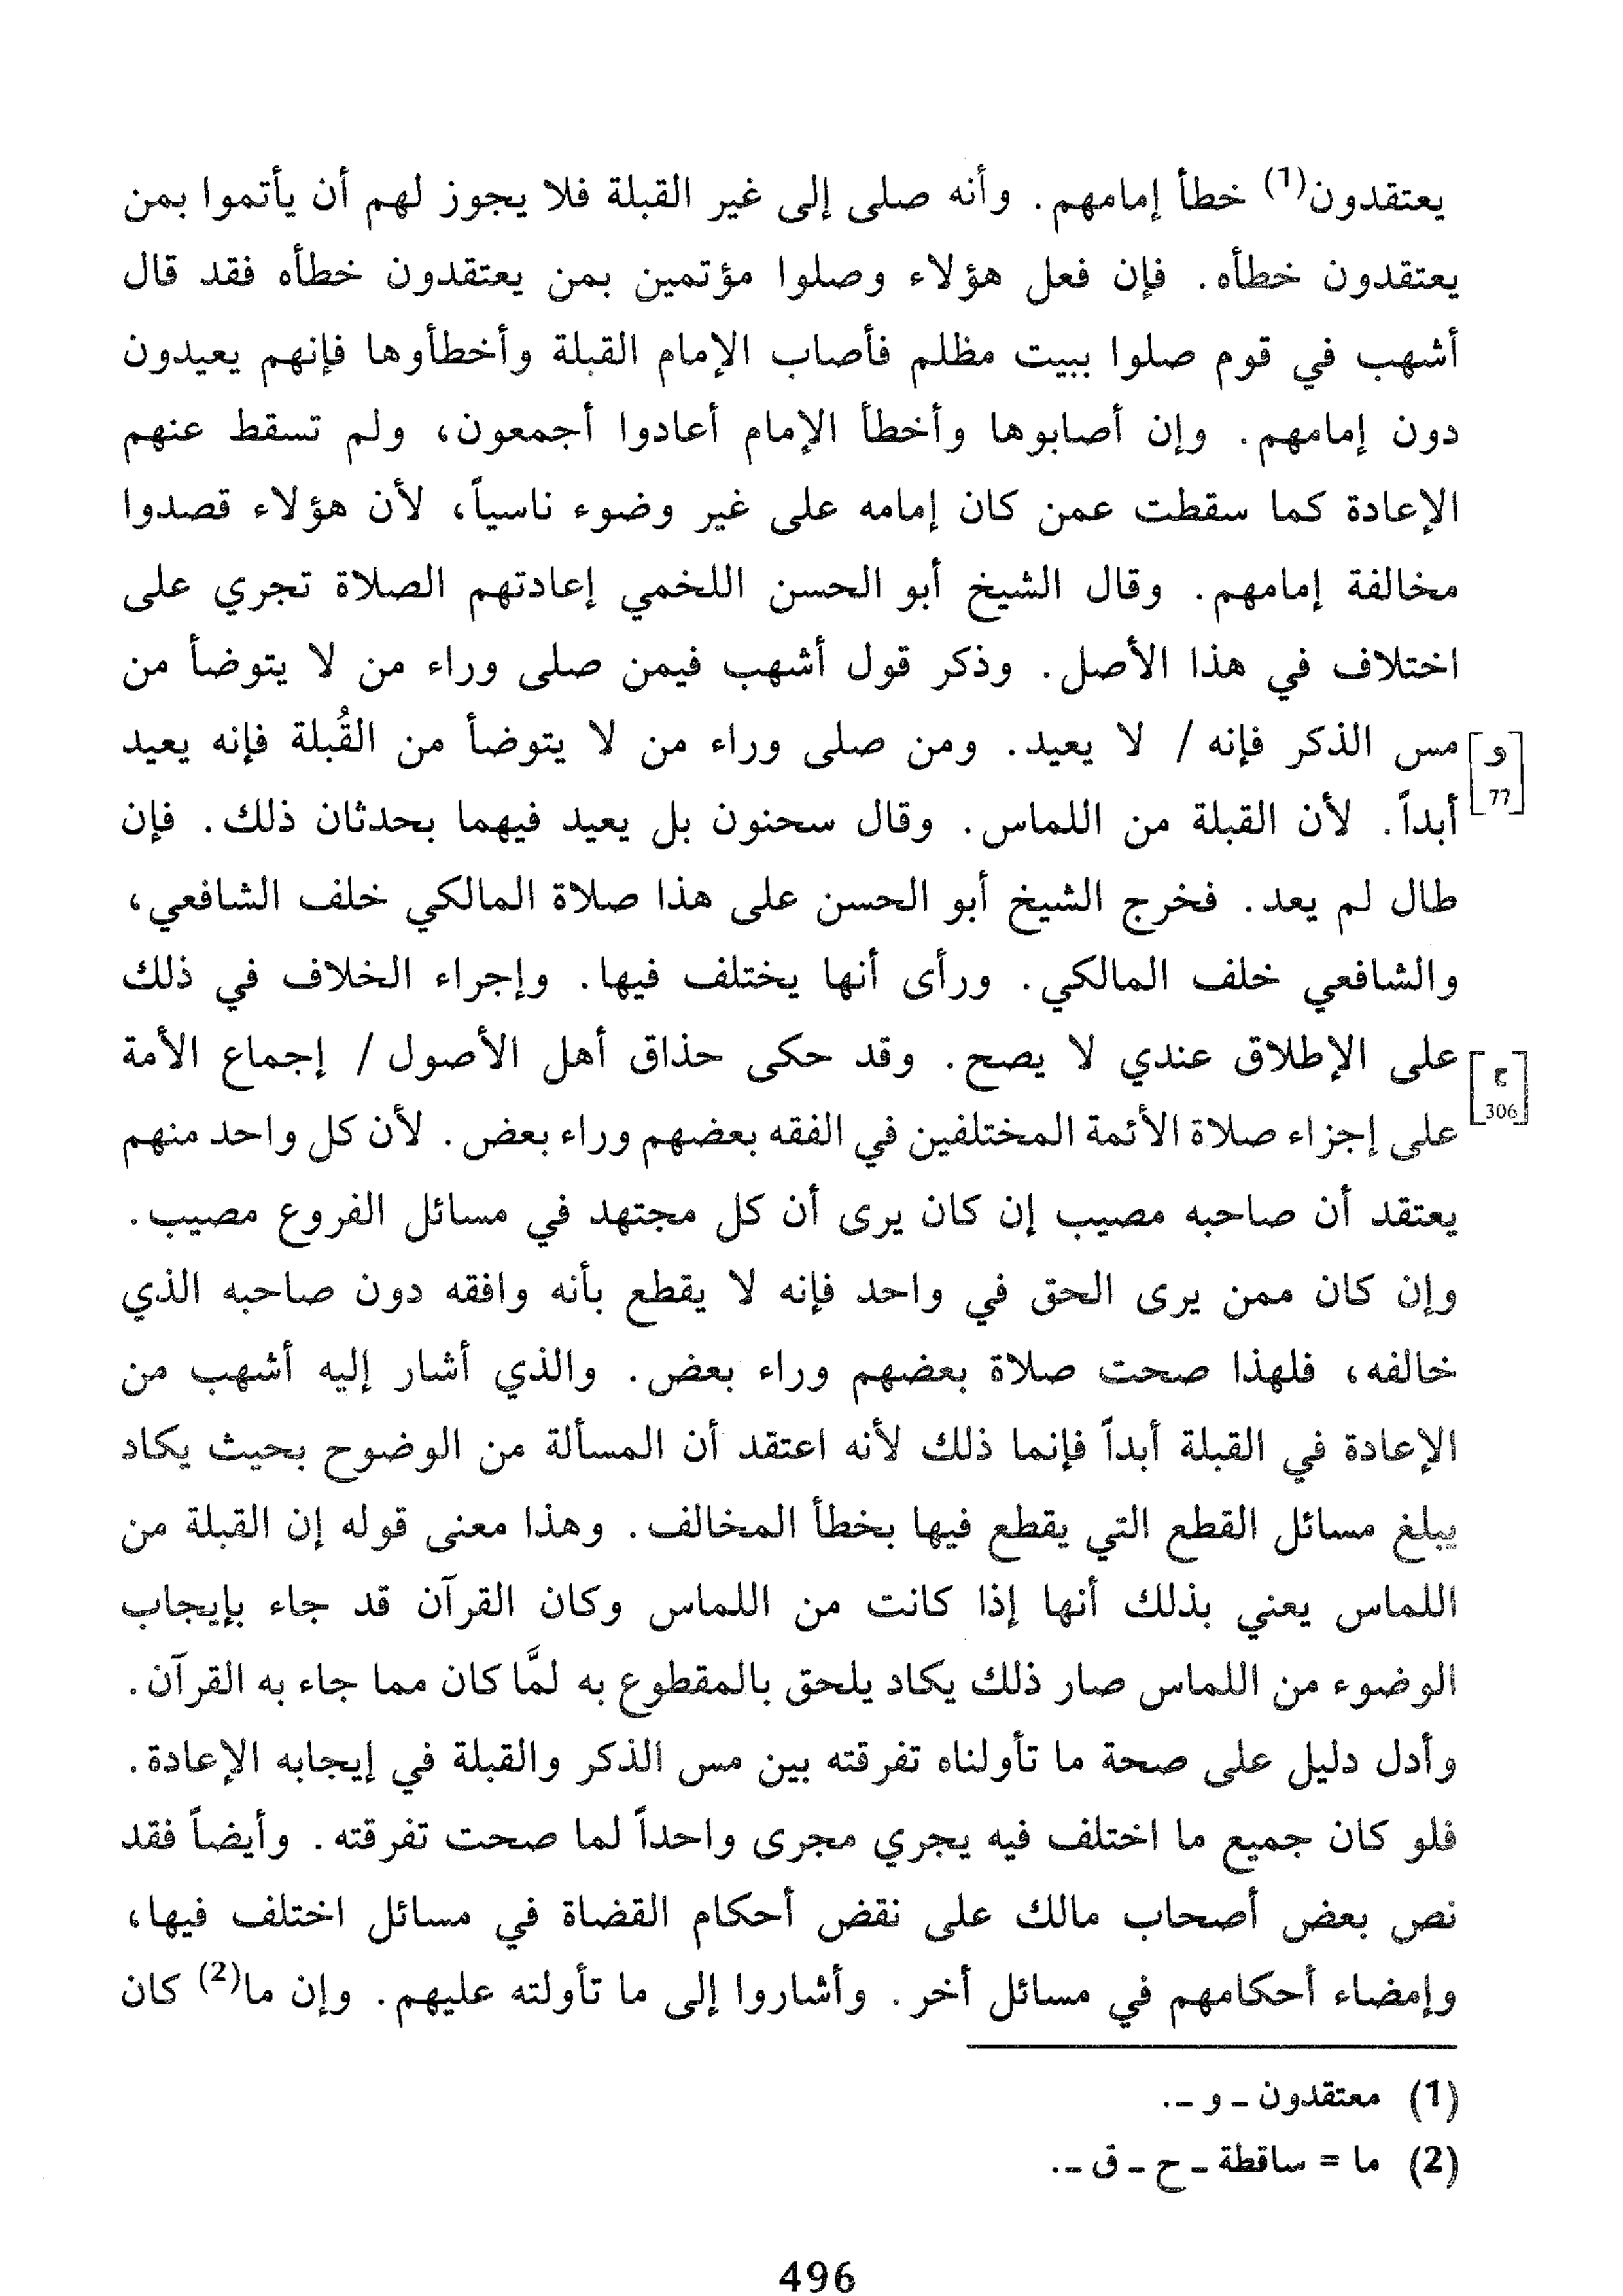 يعتقدون(1) خطأ إمامهم. وأنه صلى إلى غير القبلة فلا يجوز لهم أن يأتموا بمن
يعتقدون خطأه. فإن فعل هؤلاء وصلوا مؤتمين بمن يعتقدون خطأه فقد قال
أشهب في قوم صلوا ببيت مظلم فأصاب الإمام القبلة وأخطأوها فإنهم يعيدون
دون إمامهم. وإن أصابوها وأخطأ الإمام أعادوا أجمعون، ولم تسقط عنهم
الإعادة كما سقطت عمن كان إمامه على غير وضوء ناسياً، لأن هؤلاء قصدوا
مخالفة إمامهم. وقال الشيخ أبو الحسن اللخمي إعادتهم الصلاة تجري على
اختلاف في هذا الأصل. وذكر قول أشهب فيمن صلى وراء من لا يتوضأ من
[و 77] مس الذكر فإنه / لا يعيد. ومن صلى وراء من لا يتوضأ من القُبلة فإنه يعيد
أبداً. لأن القبلة من اللماس. وقال سحنون بل يعيد فيهما بحدثان ذلك. فإن
طال لم يعد. فخرج الشيخ أبو الحسن على هذا صلاة المالكي خلف الشافعي،
والشافعي خلف المالكي. ورأى أنها يختلف فيها. وإجراء الخلاف في ذلك
[ح 306] على الإطلاق عندي لا يصح. وقد حكى حذاق أهل الأصول / إجماع الأمة
على إجزاء صلاة الأئمة المختلفين في الفقه بعضهم وراء بعض. لأن كل واحد منهم
يعتقد أن صاحبه مصيب إن كان يرى أن كل مجتهد في مسائل الفروع مصيب.
وإن كان ممن يرى الحق في واحد فإنه لا يقطع بأنه وافقه دون صاحبه الذي
خالفه، فلهذا صحت صلاة بعضهم وراء بعض. والذي أشار إليه أشهب من
الإعادة في القبلة أبداً فإنما ذلك لأنه اعتقد أن المسألة من الوضوح بحيث يكاد
يبلغ مسائل القطع التي يقطع فيها بخطأ المخالف. وهذا معنى قوله إن القبلة من
اللماس يعني بذلك أنها إذا كانت من اللماس وكان القرآن قد جاء بإيجاب
الوضوء من اللماس صار ذلك يكاد يلحق بالمقطوع به لمَّا كان مما جاء به القرآن.
وأدل دليل على صحة ما تأولناه تفرقته بين مس الذكر والقبلة في إيجابه الإعادة.
فلو كان جميع ما اختلف فيه يجري مجرى واحداً لما صحت تفرقته. وأيضاً فقد
نص بعض أصحاب مالك على نقض أحكام القضاة في مسائل اختلف فيها،
وإمضاء أحكامهم في مسائل أخر. وأشاروا إلى ما تأولته عليهم. وإن ما(2) كان
(1) معتقدون ـ و ـ.
(2) ما = ساقطة ـ ح ـ ق ـ.
496